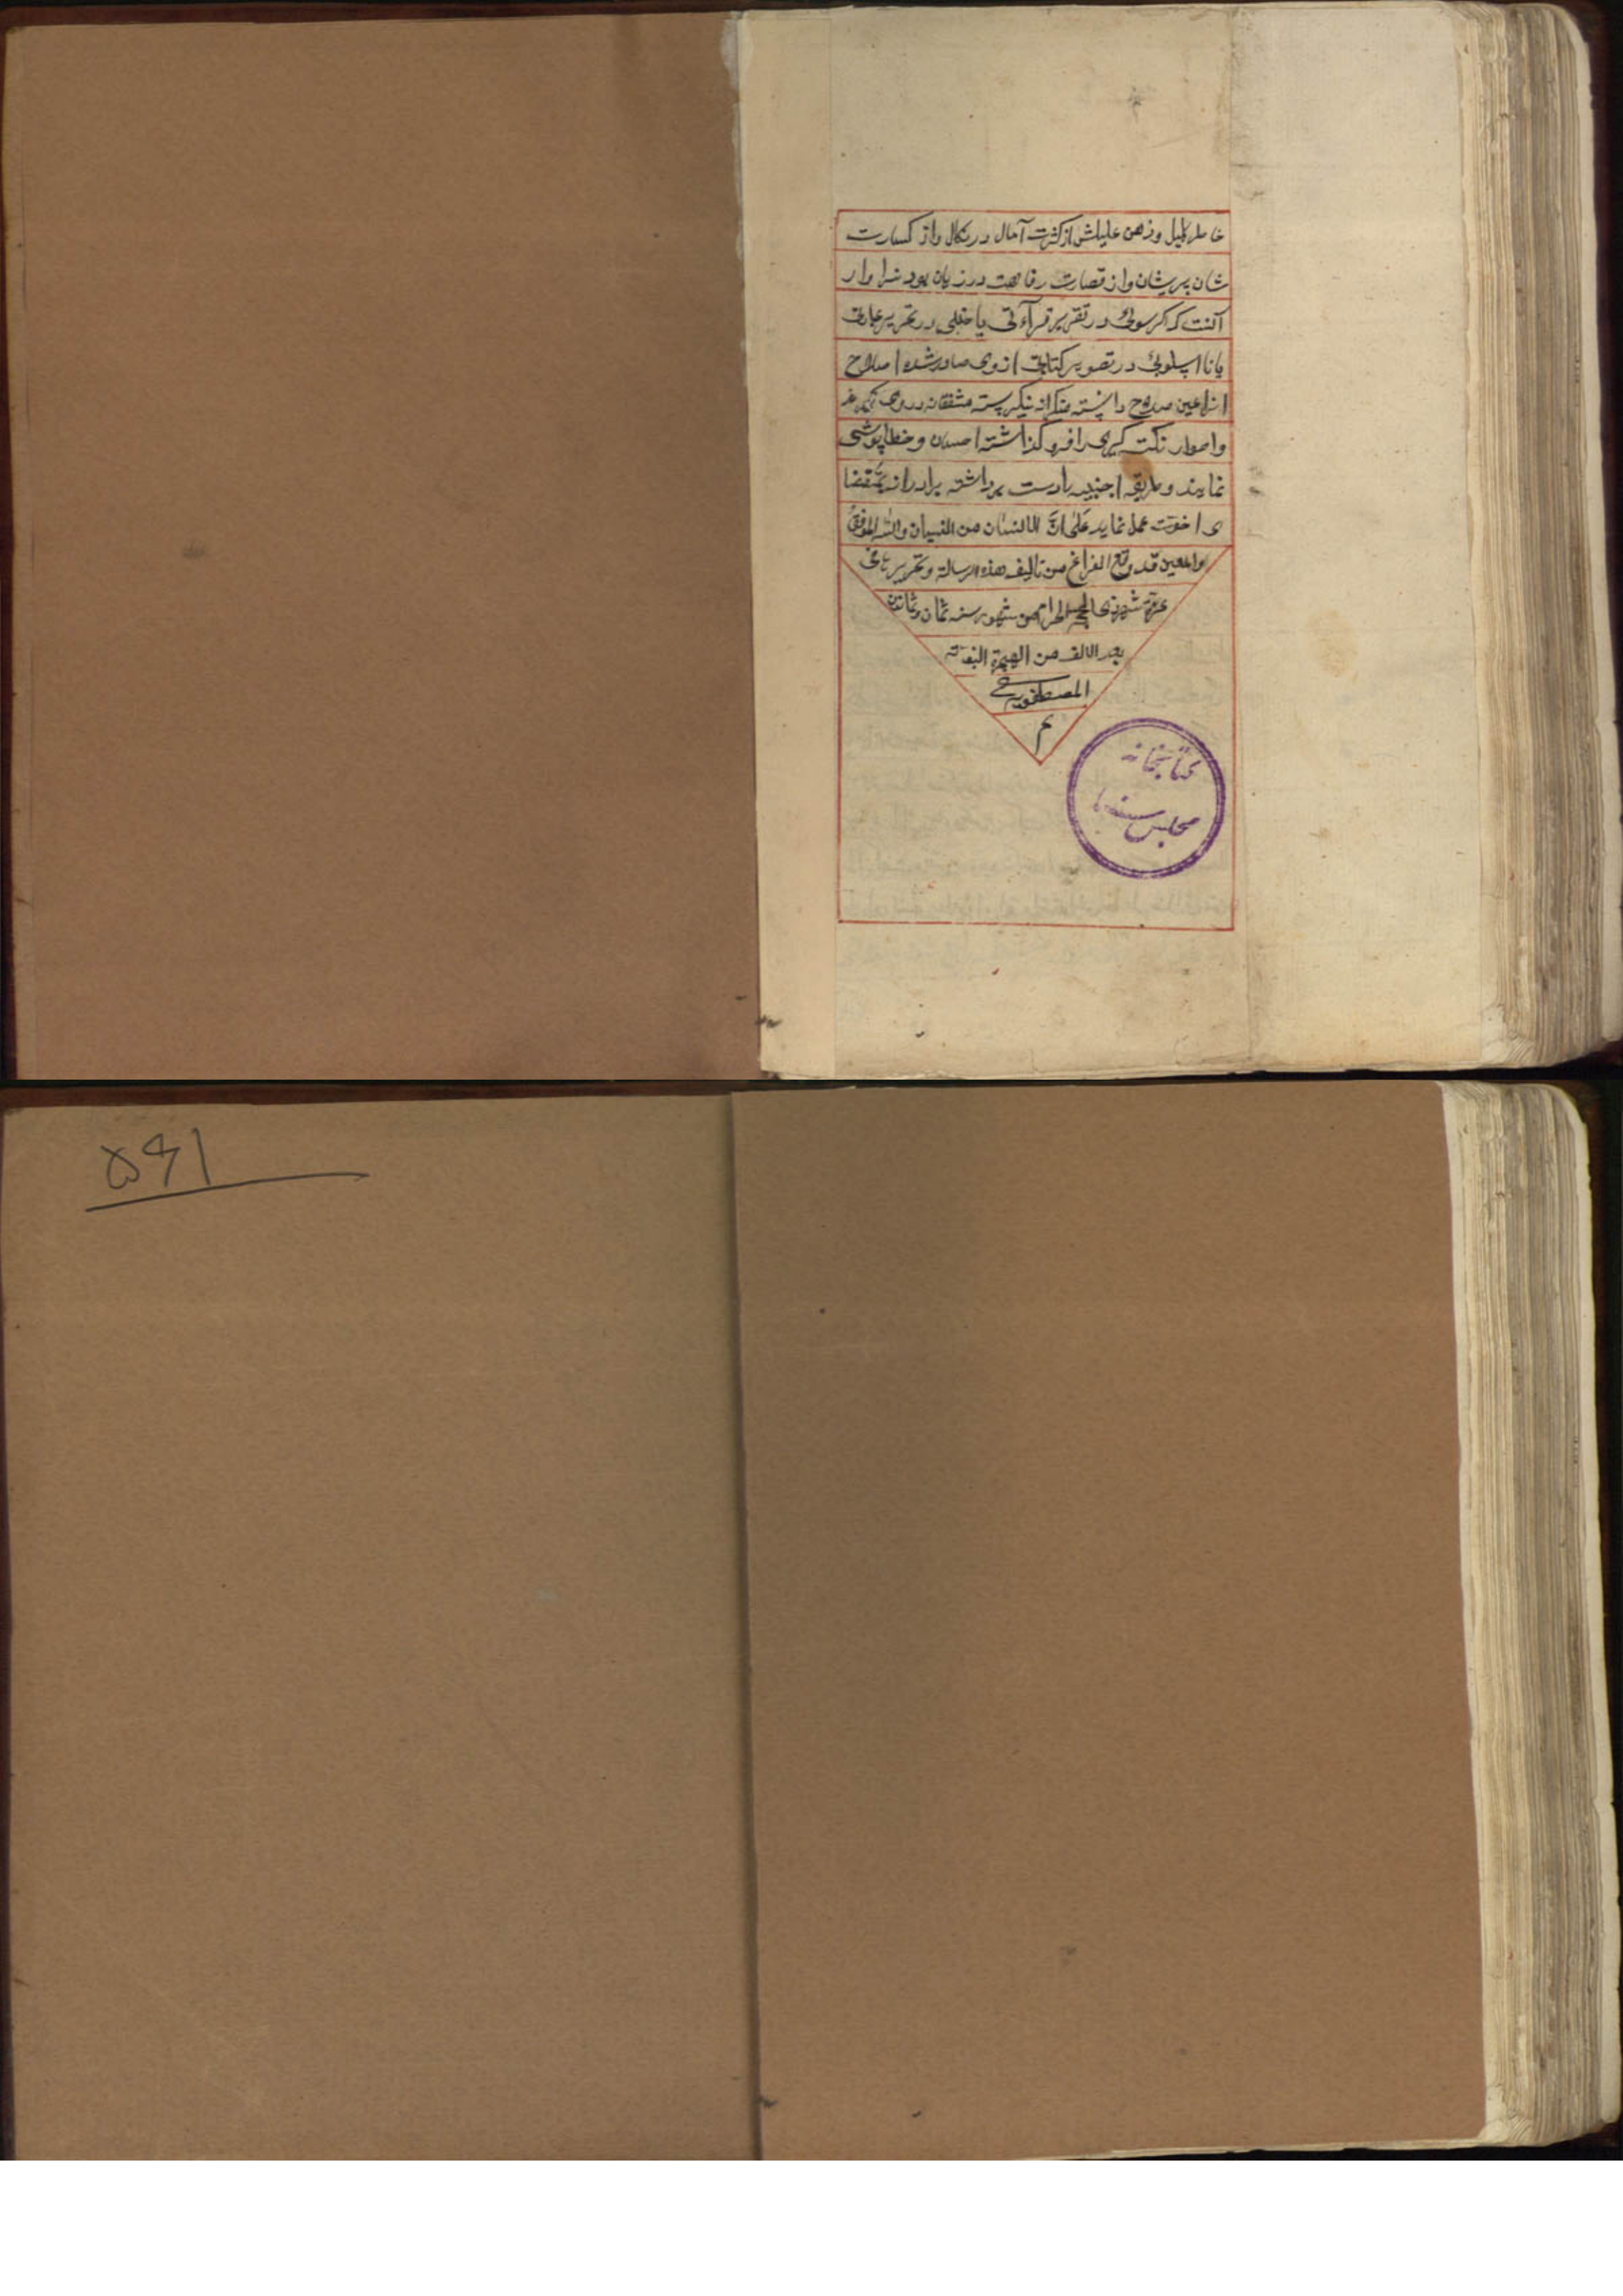 خاطر کلیل و ذهن علیلش از کثرت آمال در نکال و از کسارت
شان پریشان و از قصارت رفاهت در زیان بود سزاوار
آنست که اگر سهوی در تقریر قرآءتی یا خللی در تحریر عبارتی
یا نا اسلوبئ در تصویر کتابتی از وی صادر شده اصلاح
انرا عین صلاح دانسته منکرانه ننگرسته مشفقانه در وی نگرند
و اطوار نکت گیری را فرو گذاشته احسان و خطا پوشی
نمایند و طریقه اجنبیه را دست برداشته برادرانه بمقتضا
ی اخوت عمل نماید علی انّ الانسان من النسیان والله الموفق
والمعین قد وقع الفراغ من تالیف هذه الرسالة و تحریر
غرّة شهر ذی الحجه الحرام من شهور سنه ثمان و ثمانین
بعد الالف من الهجرة النبویه
المصطفویه
م
کتابخانه
مجلس سنا
۵۶۱